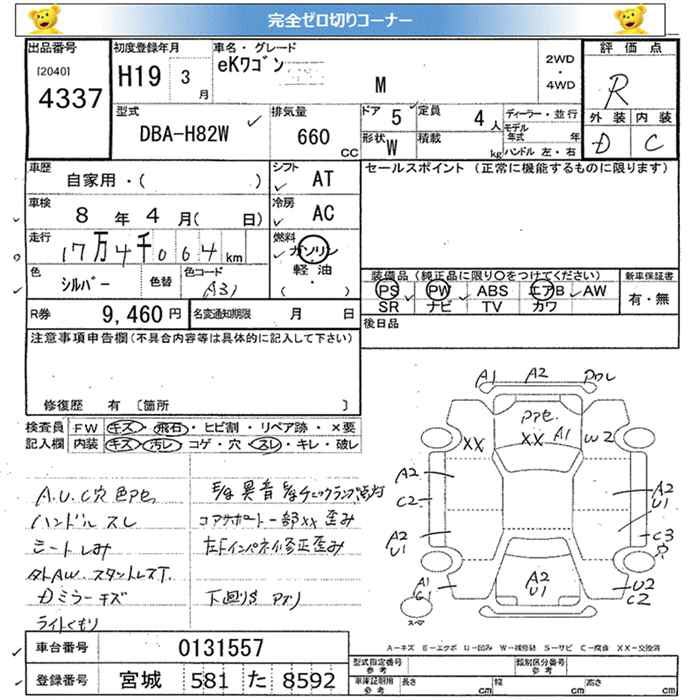 完全ゼロ切りコーナー
出品番号 初度登録年月 車名・グレード 評価点
[2040] 4337 H19 3月 eKワゴン M 2WD・4WD R
型式 排気量 ドア 5 定員 4人 ディーラー・並行 外装 内装
DBA-H82W 660cc 形状 W 積載 kg モデル年式 年 D C
ハンドル 左・右
車歴 シフト セールスポイント (正常に機能するものに限ります)
自家用・( ) AT
車検 8年4月( 日) 冷房 AC
走行 17万4千064km 燃料 ガソリン
軽油
( ・ )
色 シルバー 色替 色コード A31 装備品(純正品に限り〇をつけてください) 新車保証書
PS PW ABS エアB AW 有・無
SR ナビ TV カワ
R券 9,460円 名変通知期限 月 日 後日品
注意事項申告欄(不具合内容等は具体的に記入して下さい)
修復歴 有 〔箇所 〕
検査員 FW キズ・飛石・ヒビ割・リペア跡・×要
記入欄 内装 キズ・汚レ・コゲ・穴・スレ・キレ・破レ
A1 A2 ワレ
XX XX A1 W2
A2 C2 A2 U1
A2 U1 C3 穴
A1 G1 A2 U1 U2 C2
A.U.C穴 色アセ E/g異音 E/gチェックランプ点灯
ハンドルスレ コアサポート一部XX歪み
シートしみ 左Fインパネル修正歪み
タトAW.スタットレスT.
Dミラーキズ 下廻りS アリ
ライトくもり
A-キズ E-エクボ U-凹み W-補修跡 S-サビ C-腐食 XX-交換済
車台番号 0131557
型式指定番号 参考 類別区分番号 参考
登録番号 宮城 581 た 8592
車庫証明用 参考 長さ cm 幅 cm 高さ cm